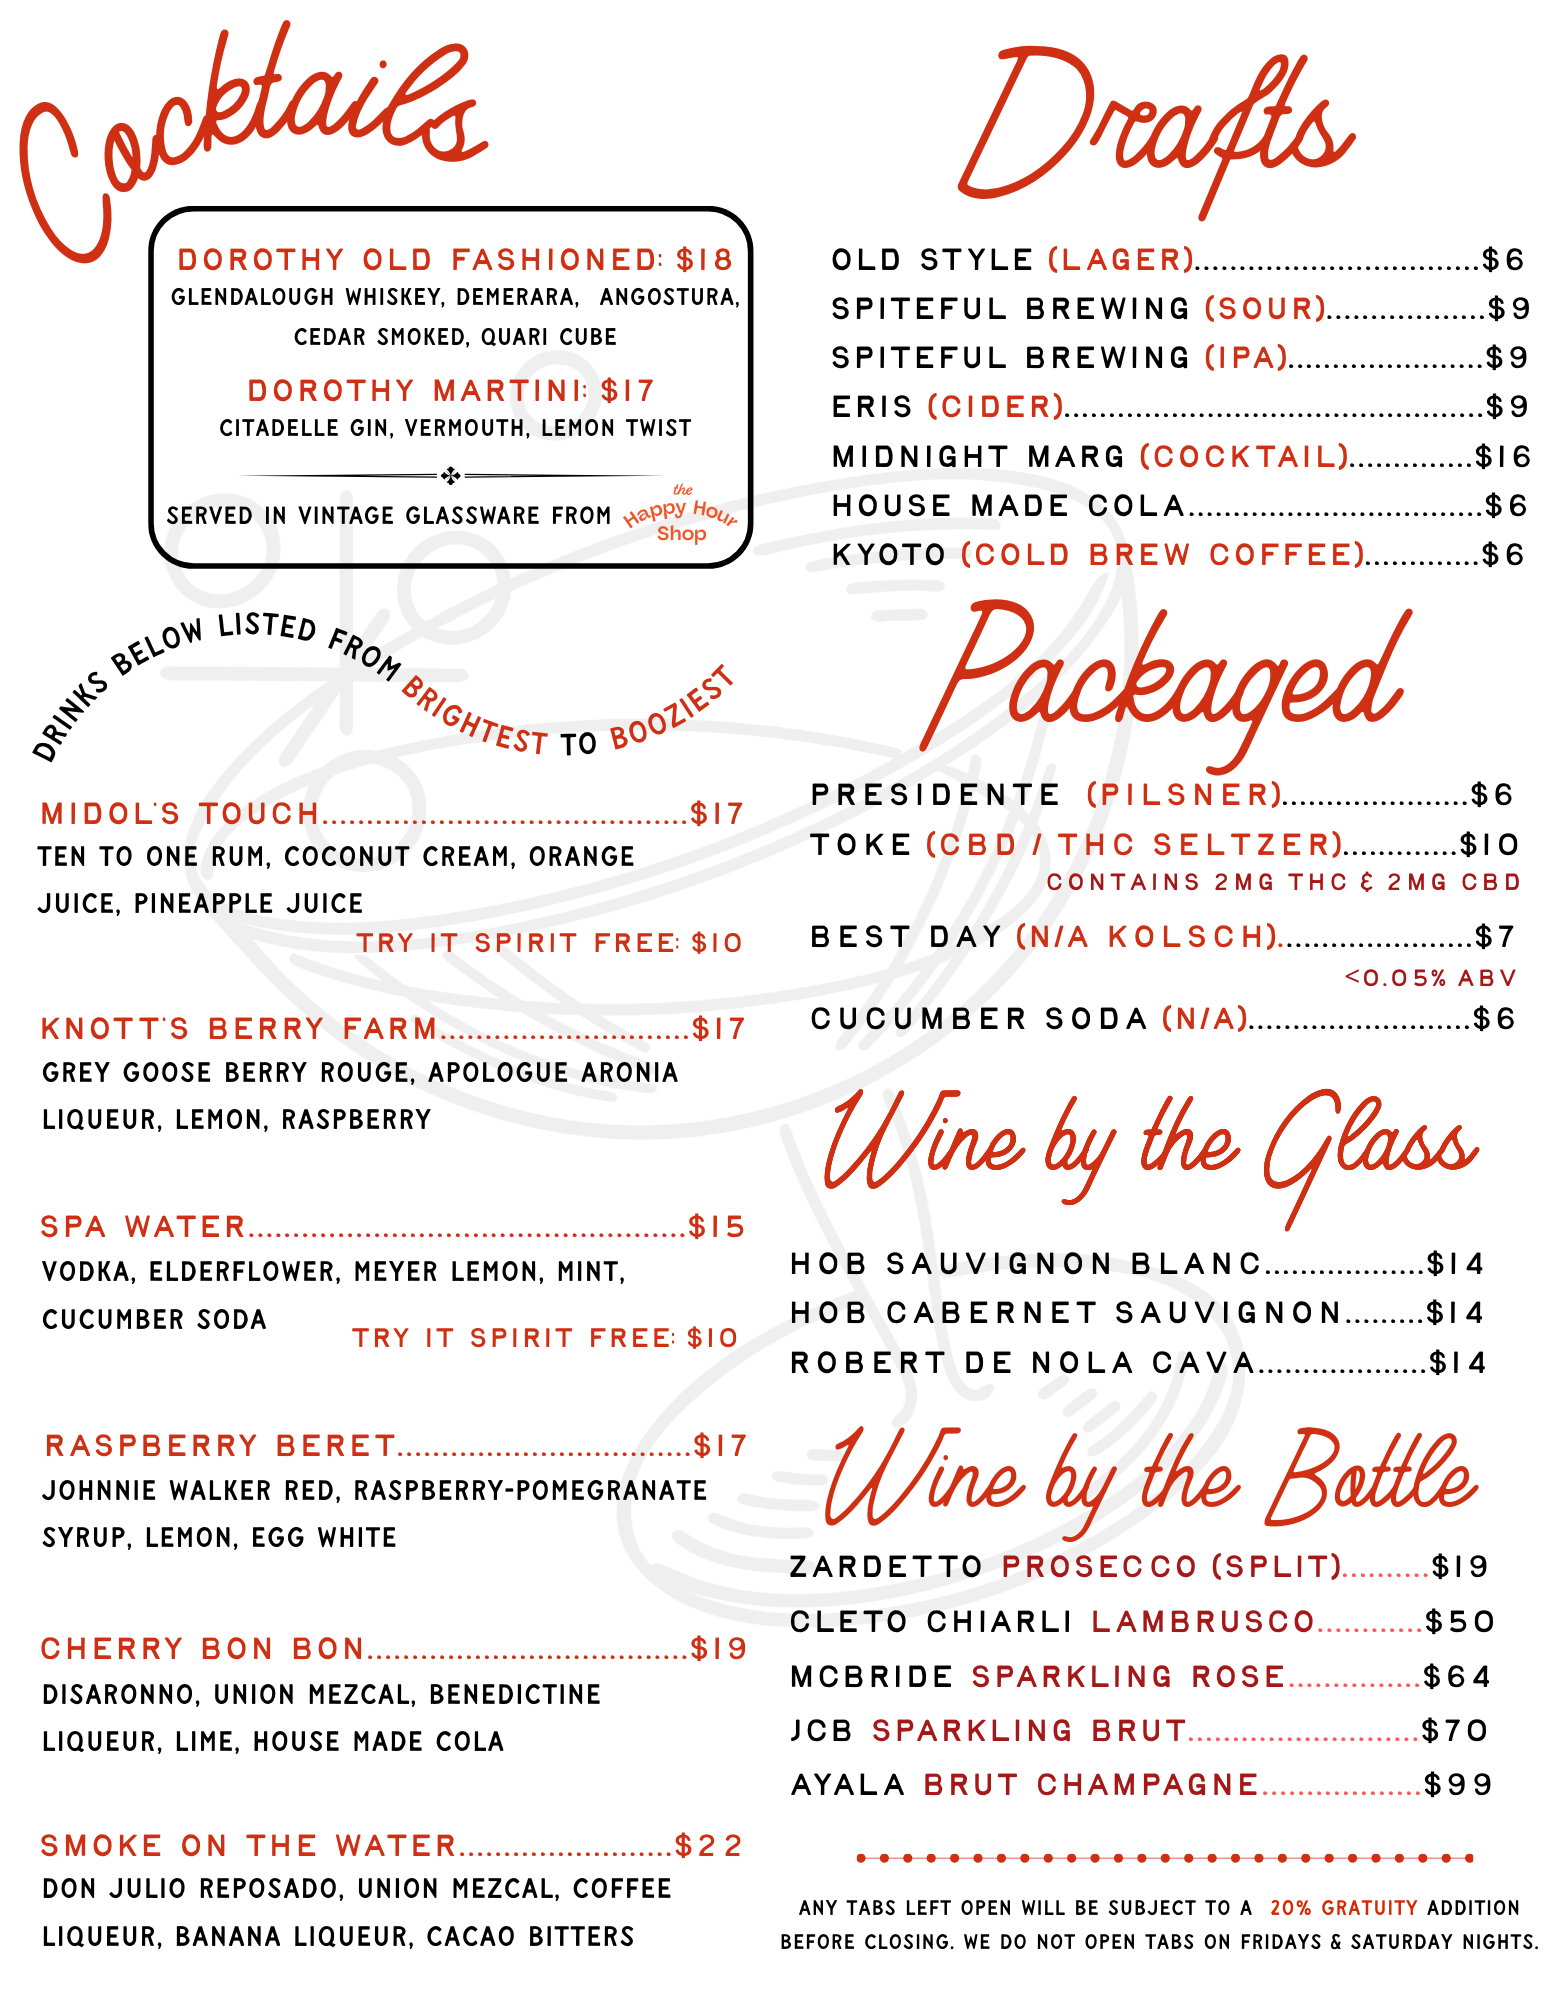 Cocktails
DOROTHY OLD FASHIONED: $18
GLENDALOUGH WHISKEY, DEMERARA, ANGOSTURA,
CEDAR SMOKED, QUARI CUBE
DOROTHY MARTINI: $17
CITADELLE GIN, VERMOUTH, LEMON TWIST
SERVED IN VINTAGE GLASSWARE FROM the Happy Hour Shop
DRINKS BELOW LISTED FROM BRIGHTEST TO BOOZIEST
MIDOL'S TOUCH.........................................$17
TEN TO ONE RUM, COCONUT CREAM, ORANGE
JUICE, PINEAPPLE JUICE
TRY IT SPIRIT FREE: $10
KNOTT'S BERRY FARM............................$17
GREY GOOSE BERRY ROUGE, APOLOGUE ARONIA
LIQUEUR, LEMON, RASPBERRY
SPA WATER.................................................$15
VODKA, ELDERFLOWER, MEYER LEMON, MINT,
CUCUMBER SODA
TRY IT SPIRIT FREE: $10
RASPBERRY BERET.................................$17
JOHNNIE WALKER RED, RASPBERRY-POMEGRANATE
SYRUP, LEMON, EGG WHITE
CHERRY BON BON....................................$19
DISARONNO, UNION MEZCAL, BENEDICTINE
LIQUEUR, LIME, HOUSE MADE COLA
SMOKE ON THE WATER........................$22
DON JULIO REPOSADO, UNION MEZCAL, COFFEE
LIQUEUR, BANANA LIQUEUR, CACAO BITTERS
Drafts
OLD STYLE (LAGER)................................$6
SPITEFUL BREWING (SOUR)..................$9
SPITEFUL BREWING (IPA)......................$9
ERIS (CIDER)...............................................$9
MIDNIGHT MARG (COCKTAIL)..............$16
HOUSE MADE COLA.................................$6
KYOTO (COLD BREW COFFEE).............$6
Packaged
PRESIDENTE (PILSNER).....................$6
TOKE (CBD / THC SELTZER).............$10
CONTAINS 2MG THC & 2MG CBD
BEST DAY (N/A KOLSCH)......................$7
<0.05% ABV
CUCUMBER SODA (N/A).........................$6
Wine by the Glass
HOB SAUVIGNON BLANC..................$14
HOB CABERNET SAUVIGNON.........$14
ROBERT DE NOLA CAVA...................$14
Wine by the Bottle
ZARDETTO PROSECCO (SPLIT)..........$19
CLETO CHIARLI LAMBRUSCO............$50
MCBRIDE SPARKLING ROSE...............$64
JCB SPARKLING BRUT..........................$70
AYALA BRUT CHAMPAGNE..................$99
ANY TABS LEFT OPEN WILL BE SUBJECT TO A 20% GRATUITY ADDITION
BEFORE CLOSING. WE DO NOT OPEN TABS ON FRIDAYS & SATURDAY NIGHTS.